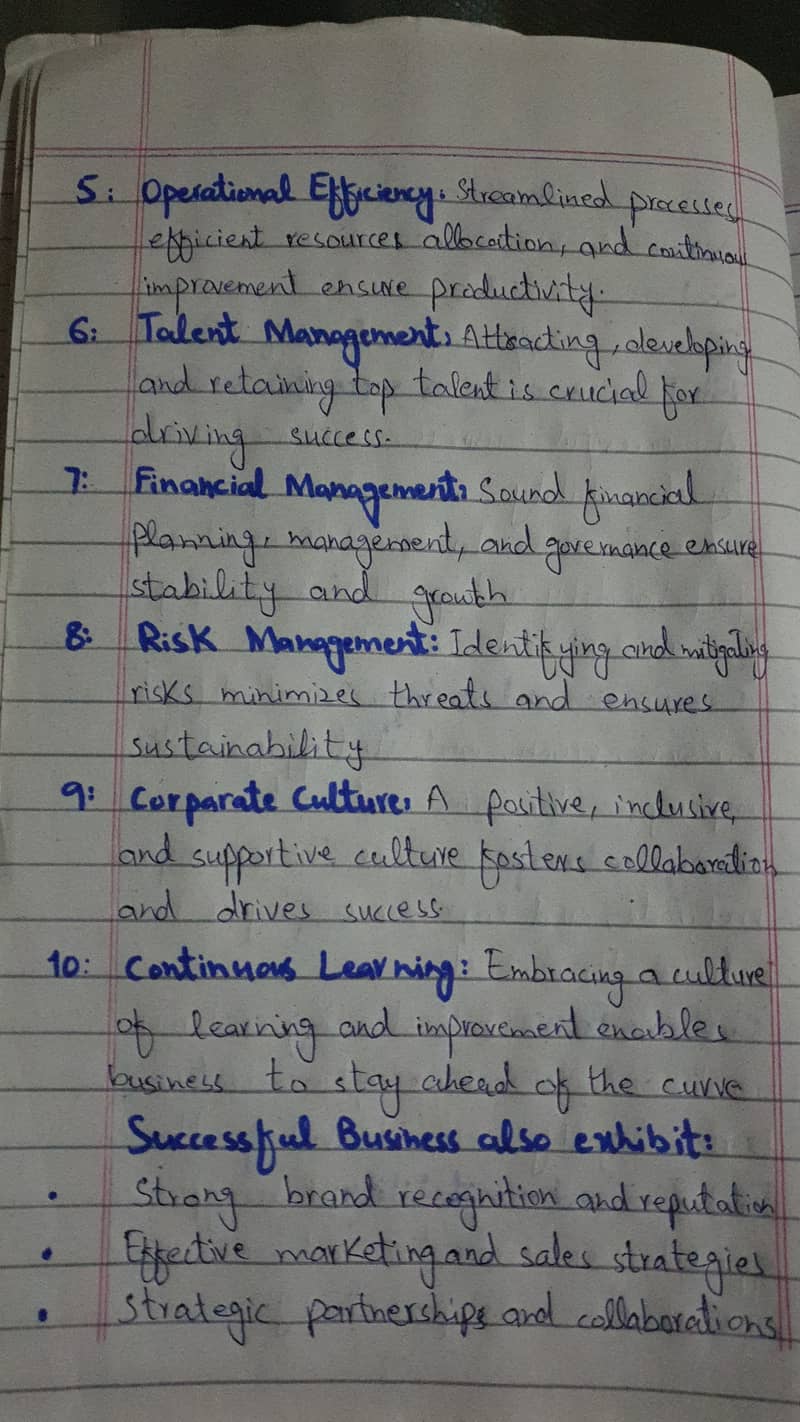 5: Operational Efficiency: Streamlined processes,
efficient resources allocation, and continuous
improvement ensure productivity.
6: Talent Management: Attracting, developing
and retaining top talent is crucial for
driving success.
7: Financial Management: Sound financial
Planning, management, and governance ensure
stability and growth
8: Risk Management: Identifying and mitigating
risks minimizes threats and ensures
sustainability
9: Corparate Culture: A positive, inclusive,
and supportive culture fosters collaboration
and drives success.
10: Continuous Learning: Embracing a culture
of learning and improvement enables
business to stay ahead of the curve
Successful Business also exhibit:
• Strong brand recognition and reputation
• Effective marketing and sales strategies
• Strategic partnerships and collaborations